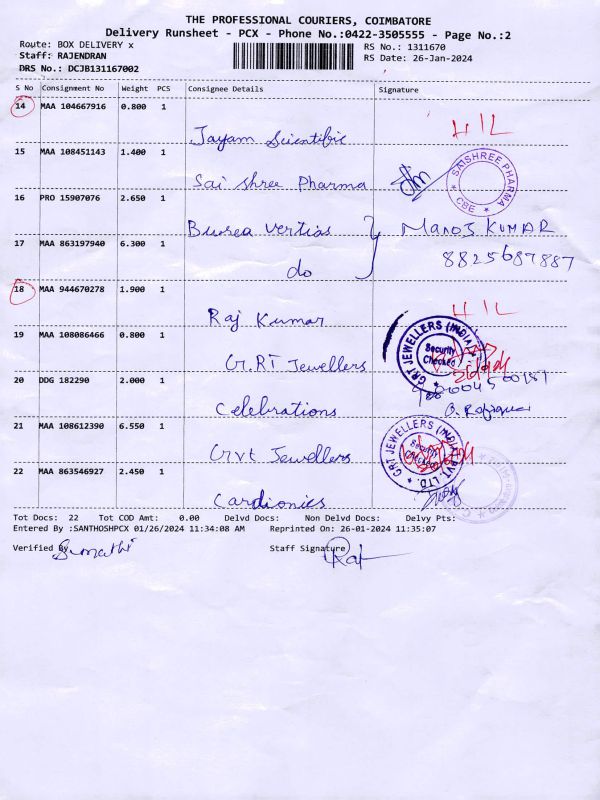 THE PROFESSIONAL COURIERS, COIMBATORE
Delivery Runsheet - PCX - Phone No.:0422-3505555 - Page No.:2
Route: BOX DELIVERY x
Staff: RAJENDRAN
DRS No.: DCJB131167002
RS No.: 1311670
RS Date: 26-Jan-2024
S No Consignment No Weight PCS Consignee Details Signature
14 MAA 104667916 0.800 1
Jayam Scientific H I L
15 MAA 108451143 1.400 1
Sai Shree Pharma
SAISHREE PHARMA
* CBE *
16 PRO 15907076 2.650 1
Buurea Vertias } MANOJ KUMAR
17 MAA 863197940 6.300 1
8825687887
do
18 MAA 944670278 1.900 1
Raj Kumar H I L
19 MAA 108086466 0.800 1
G.RT Jewellers
GRT JEWELLERS (INDIA)
Security
Checked
20 DDG 182290 2.000 1
Celebrations
21 MAA 108612390 6.550 1
Grvt Jewellers
GRT JEWELLERS (INDIA) PVT. LTD.
Security
22 MAA 863546927 2.450 1
Cardionics
Tot Docs: 22 Tot COD Amt: 0.00 Delvd Docs: Non Delvd Docs: Delvy Pts:
Entered By :SANTHOSHPCX 01/26/2024 11:34:08 AM Reprinted On: 26-01-2024 11:35:07
Verified By Sumathi Staff Signature